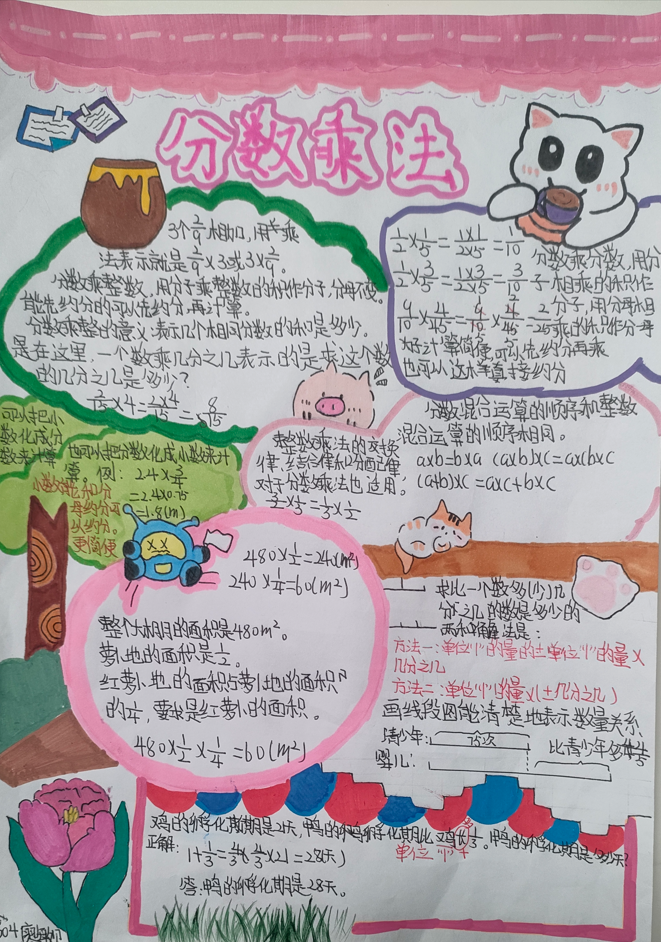 分数乘法
3个2/9相加,用乘
法表示就是2/9×3或3×2/9。
分数乘整数,用分子乘整数的积作分子,分母不变。
能先约分的可以先约分,再计算。
分数乘整的意义:表示几个相同分数的和是多少。
是在这里.一个数乘几分之几表示的是求这个数
的几分之几是多少?
2/15×4=2×4/15=8/15
1/2×1/5=1×1/2×5=1/10
分数乘分数,用分
1/2×3/5=1×3/2×5=3/10
子相乘的积作
分子,用分母相
乘的积作分母
为了计算简便,可以先约分再乘
也可以这样直接约分
可以把小
数化成分
数来计算
也可以把分数化成小数来计
算。例:24×3/4
=2.4×0.75
=1.8(m)
小数先和分
母约分可
以约分。
更简便
分数混合运算的顺序和整数
混合运算的顺序相同。
整数乘法的交换
律,结合律和分配律
对于分数乘法也适用。
a×b=b×a (a×b)×c=a×b×c
(a+b)×c=a×c+b×c
480×1/2=240(m²)
240×1/4=60(m²)
整个大棚的面积是480m²。
萝卜地的面积是1/2。
红萝卜地的面积占萝卜地的面积
的1/4,要求是红萝卜的面积。
480×1/2×1/4=60(m²)
求比一个数多(少)几
分之几的数是多少的
两种解法是:
方法一:单位"1"的量的±单位"1"的量×
几分之几
方法二:单位"1"的量×(1±几分之几)
画线段图能清楚地表示数量关系
青少年:
75次
婴儿:
比青少年多4/5
鸡的孵化期是21天,鸭的孵化期比鸡长1/3。鸭的孵化期是多少天?
单位"1"
正解:
1+1/3=4/3
4/3×21=28(天)
答:鸭的孵化期是28天。